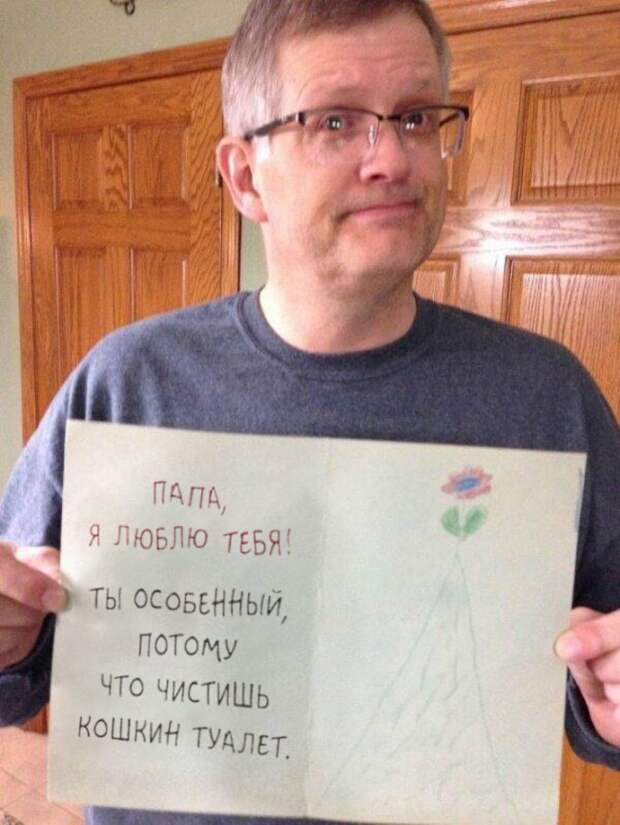 ПАПА,
Я ЛЮБЛЮ ТЕБЯ!
ТЫ ОСОБЕННЫЙ,
ПОТОМУ
ЧТО ЧИСТИШЬ
КОШКИН ТУАЛЕТ.